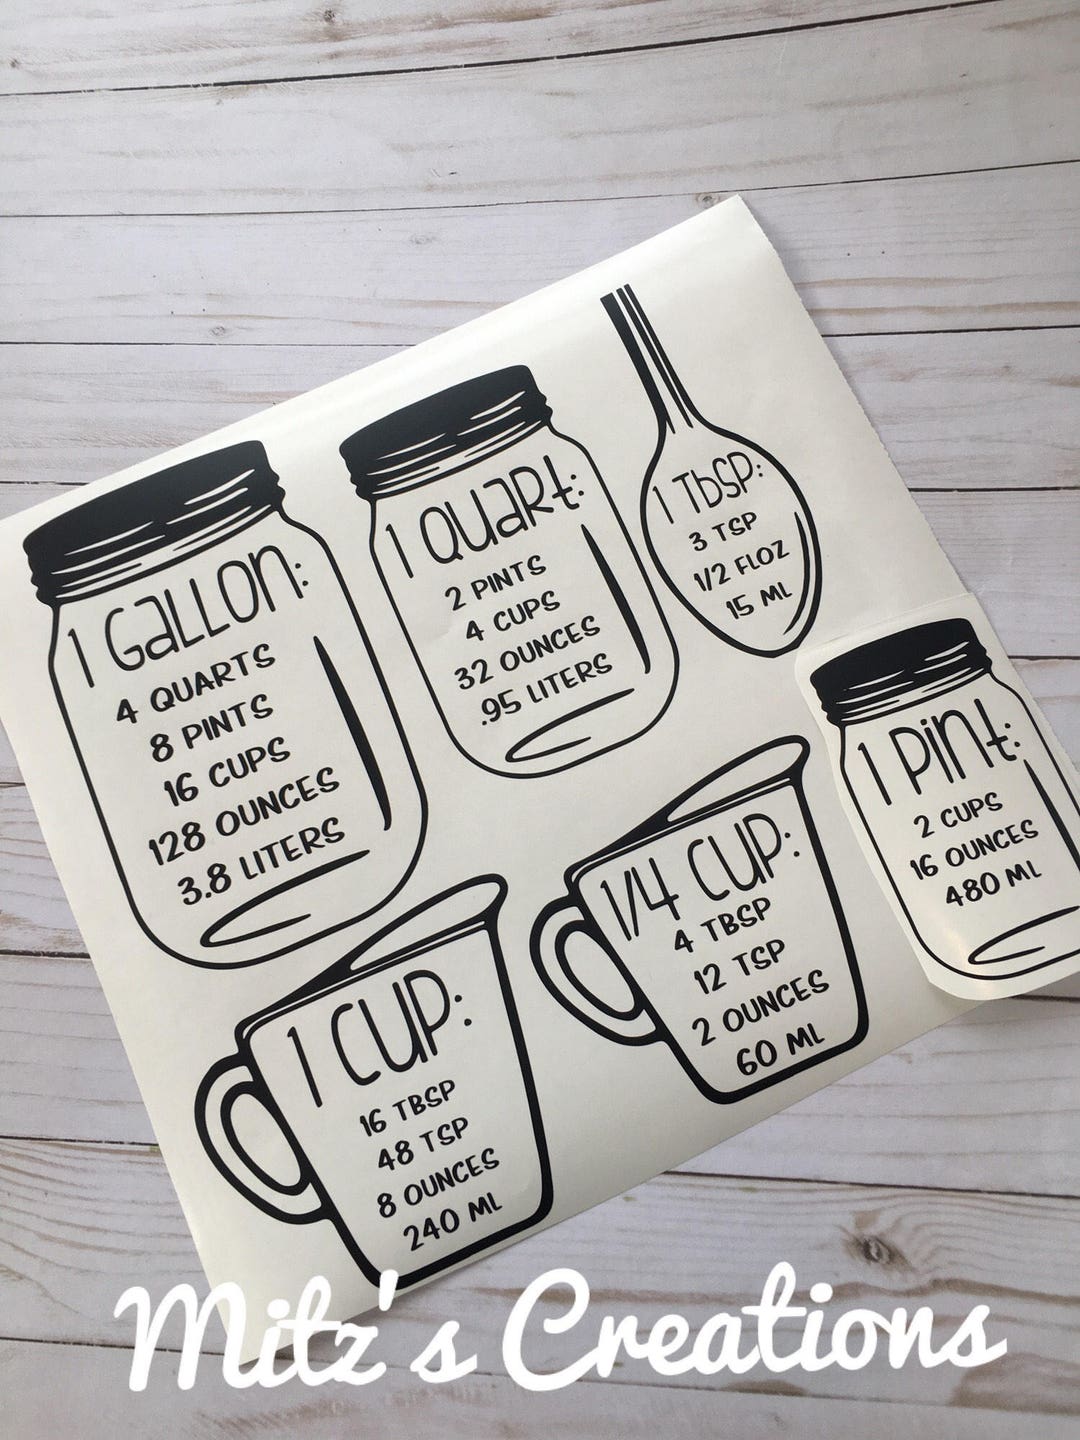 1 GaLLON:
4 QUARTS
8 PINTS
16 CUPS
128 OUNCES
3.8 LITERS
1 QUaRt:
2 PINTS
4 CUPS
32 OUNCES
.95 LITERS
1 TbSP:
3 TSP
1/2 FLOZ
15 ML
1 PiNt:
2 CUPS
16 OUNCES
480 ML
1 CUP:
16 TBSP
48 TSP
8 OUNCES
240 ML
1/4 CUP:
4 TBSP
12 TSP
2 OUNCES
60 ML
Mitz's Creations